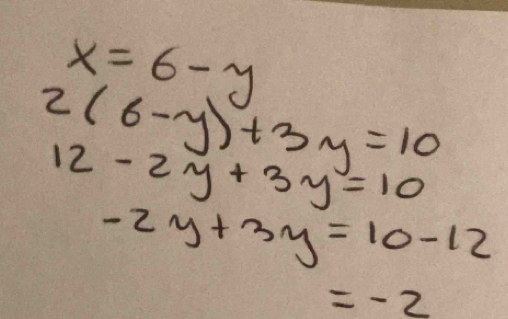 x = 6 - y
2(6-y)+3y=10
12 - 2y + 3y = 10
-2y + 3y = 10-12
= -2